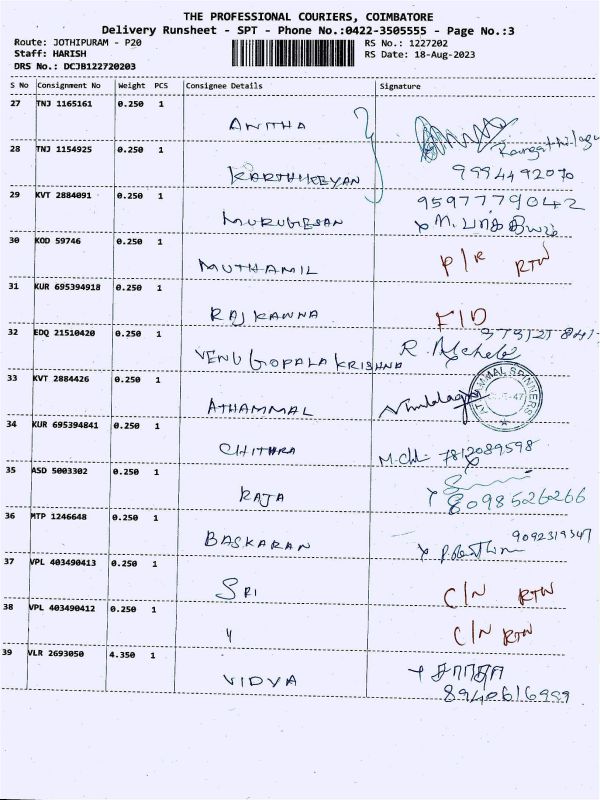 THE PROFESSIONAL COURIERS, COIMBATORE
Delivery Runsheet - SPT - Phone No.:0422-3505555 - Page No.:3
Route: JOTHIPURAM - P20 RS No.: 1227202
Staff: HARISH RS Date: 18-Aug-2023
DRS No.: DCJB122720203
S No Consignment No Weight PCS Consignee Details Signature
27 TNJ 1165161 0.250 1
ANITHA
28 TNJ 1154925 0.250 1
KARTHIKEYAN 9994492070
29 KVT 2884091 0.250 1 9597779042
MURUGESAN
30 KOD 59746 0.250 1
MUTHAMIL P/R RTN
31 KUR 695394918 0.250 1
RAJKANNA F/D
32 EDQ 21510420 0.250 1
VENU GOPALA KRISHNA R.
33 KVT 2884426 0.250 1
ATHAMMAL
34 KUR 695394841 0.250 1
CHITHRA 7812089598
35 ASD 5003302 0.250 1
RAJA 8098526266
36 MTP 1246648 0.250 1
BASKARAN 9092319347
37 VPL 403490413 0.250 1
SRI C/N RTN
38 VPL 403490412 0.250 1
C/N RTN
39 VLR 2693050 4.350 1
VIDVA 8940616999